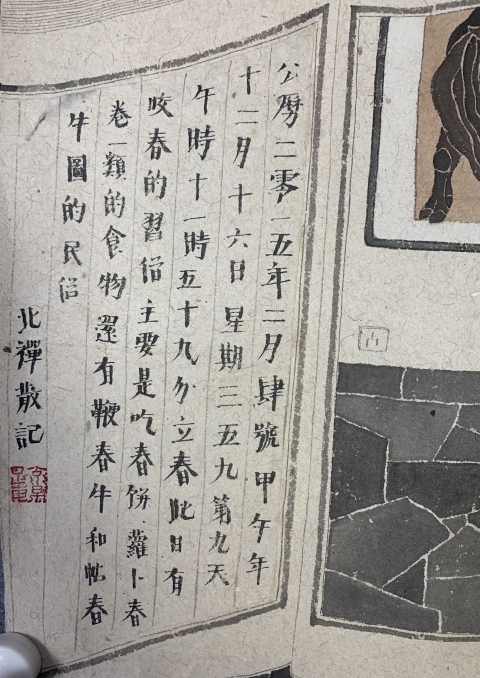 公曆二零一五年二月肆號甲午年
十二月十六日星期三五九第九天
午時十一時五十九分立春此日有
咬春的習俗主要是吃春饼蘿卜春
卷一類的食物還有鞭春牛和帖春
牛圖的民俗
北禪散記